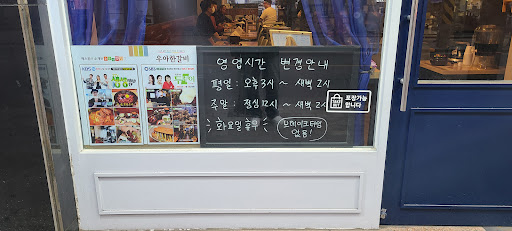 우아한갈비
KBS
SBS
영업시간 변경안내
평일 : 오후 3시 ~ 새벽 2시
주말 : 점심 12시 ~ 새벽 2시
화요일 휴무
브레이크타임
없음!
포장가능
합니다